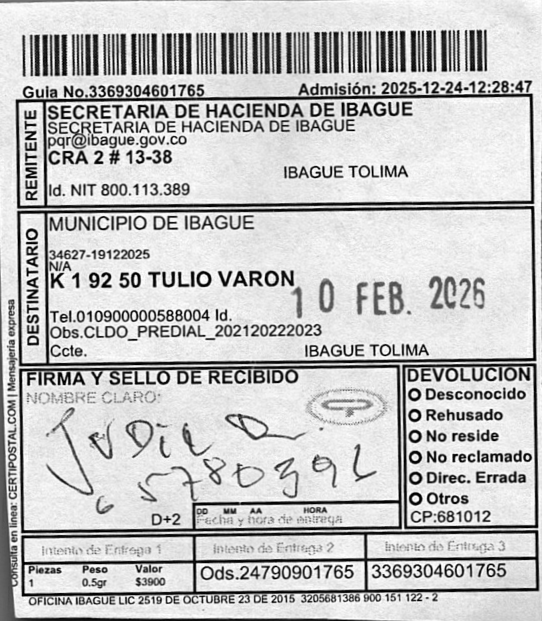 Guia No.3369304601765 Admisión: 2025-12-24-12:28:47
REMITENTE
SECRETARIA DE HACIENDA DE IBAGUE
SECRETARIA DE HACIENDA DE IBAGUE
pqr@ibague.gov.co
CRA 2 # 13-38
IBAGUE TOLIMA
Id. NIT 800.113.389
DESTINATARIO
MUNICIPIO DE IBAGUE
34627-19122025
N/A
K 1 92 50 TULIO VARON
10 FEB. 2026
Tel.010900000588004 Id.
Obs.CLDO_PREDIAL_202120222023
Ccte. IBAGUE TOLIMA
Consulta en linea: CERTIPOSTAL.COM | Mensajería expresa
FIRMA Y SELLO DE RECIBIDO
NOMBRE CLARO:
65780392
D+2
DD MM AA HORA
Fecha y hora de entrega
DEVOLUCION
Desconocido
Rehusado
No reside
No reclamado
Direc. Errada
Otros
CP:681012
Intento de Entrega 1 Intento de Entrega 2 Intento de Entrega 3
Piezas Peso Valor
1 0.5gr $3900
Ods.24790901765 3369304601765
OFICINA IBAGUE LIC 2519 DE OCTUBRE 23 DE 2015 3205681386 900 151 122 - 2